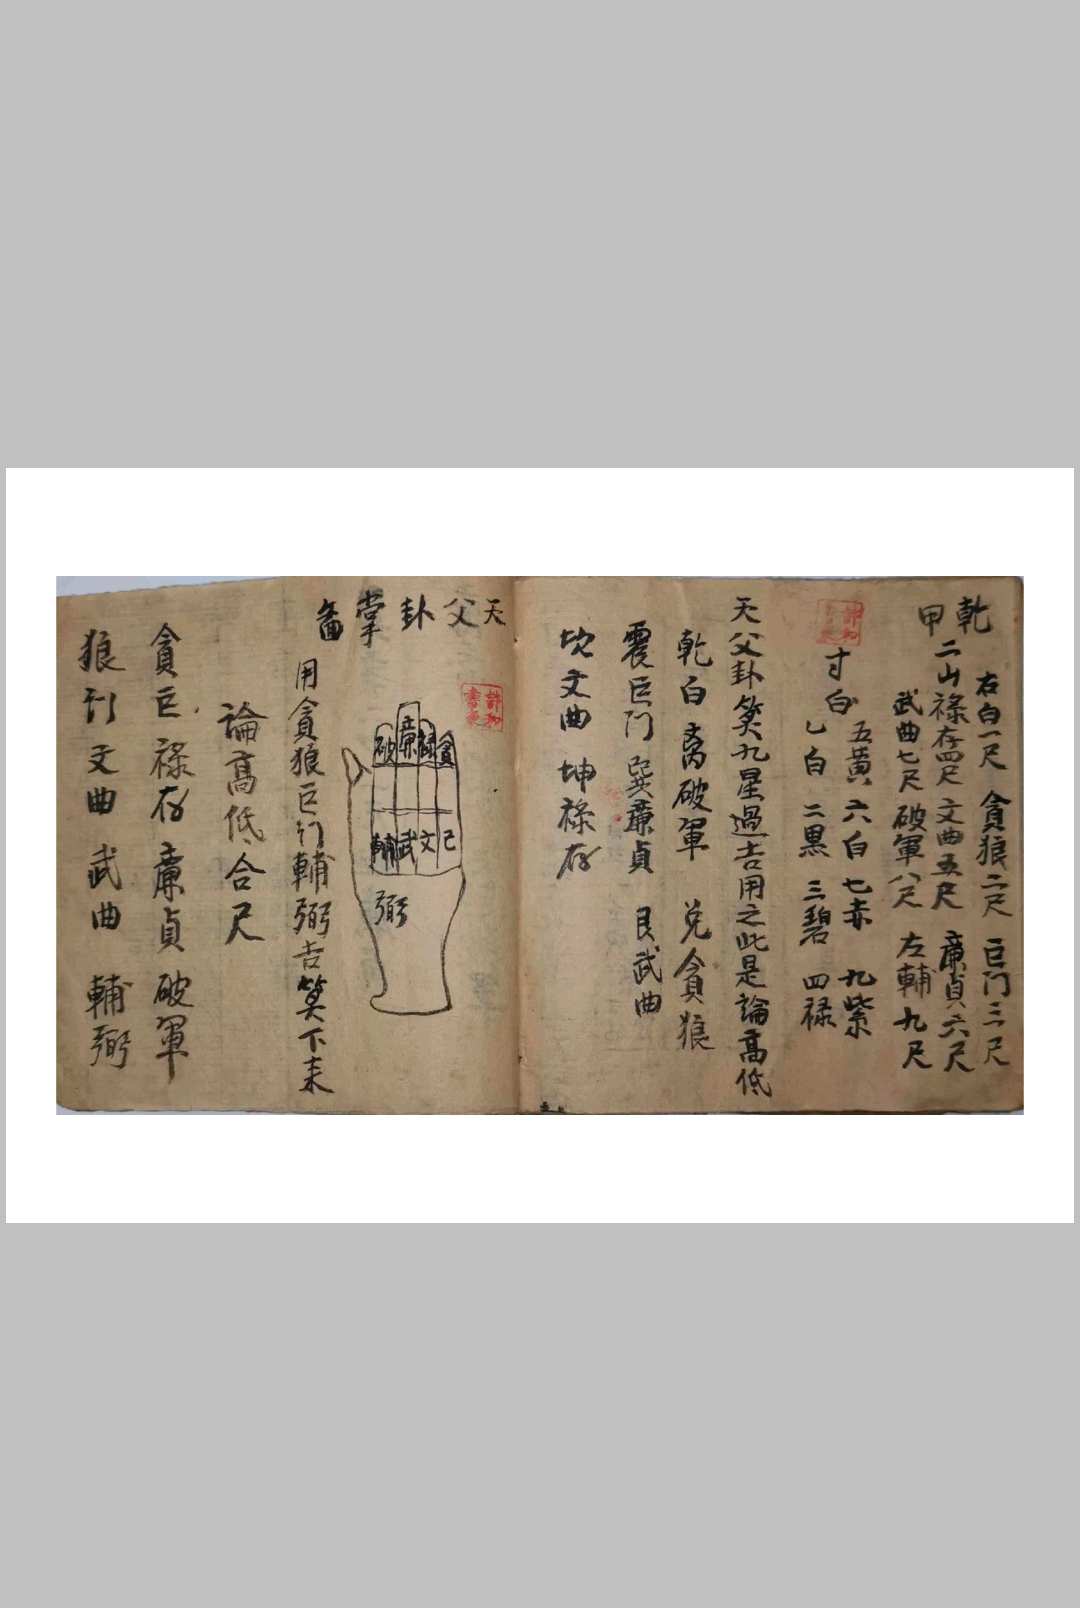 乾
甲
二山
右白一尺 貪狼二尺 巨门三尺
禄存四尺 文曲五尺 廉貞六尺
武曲七尺 破軍八尺 左輔九尺
寸白
五黄 六白 七赤 九紫
乙白 二黑 三碧 四禄
天父卦筭九星過吉用之此是論高低
乾白 离破軍 兑貪狼
震巨门 巽廉貞 艮武曲
坎文曲 坤禄存
天父卦掌畨
貪
禄
廉
破
己
文
武
輔
弼
用貪狼巨门輔弼吉筭下来
論高低合尺
貪巨禄存廉貞破軍
狼刂文曲武曲輔弼